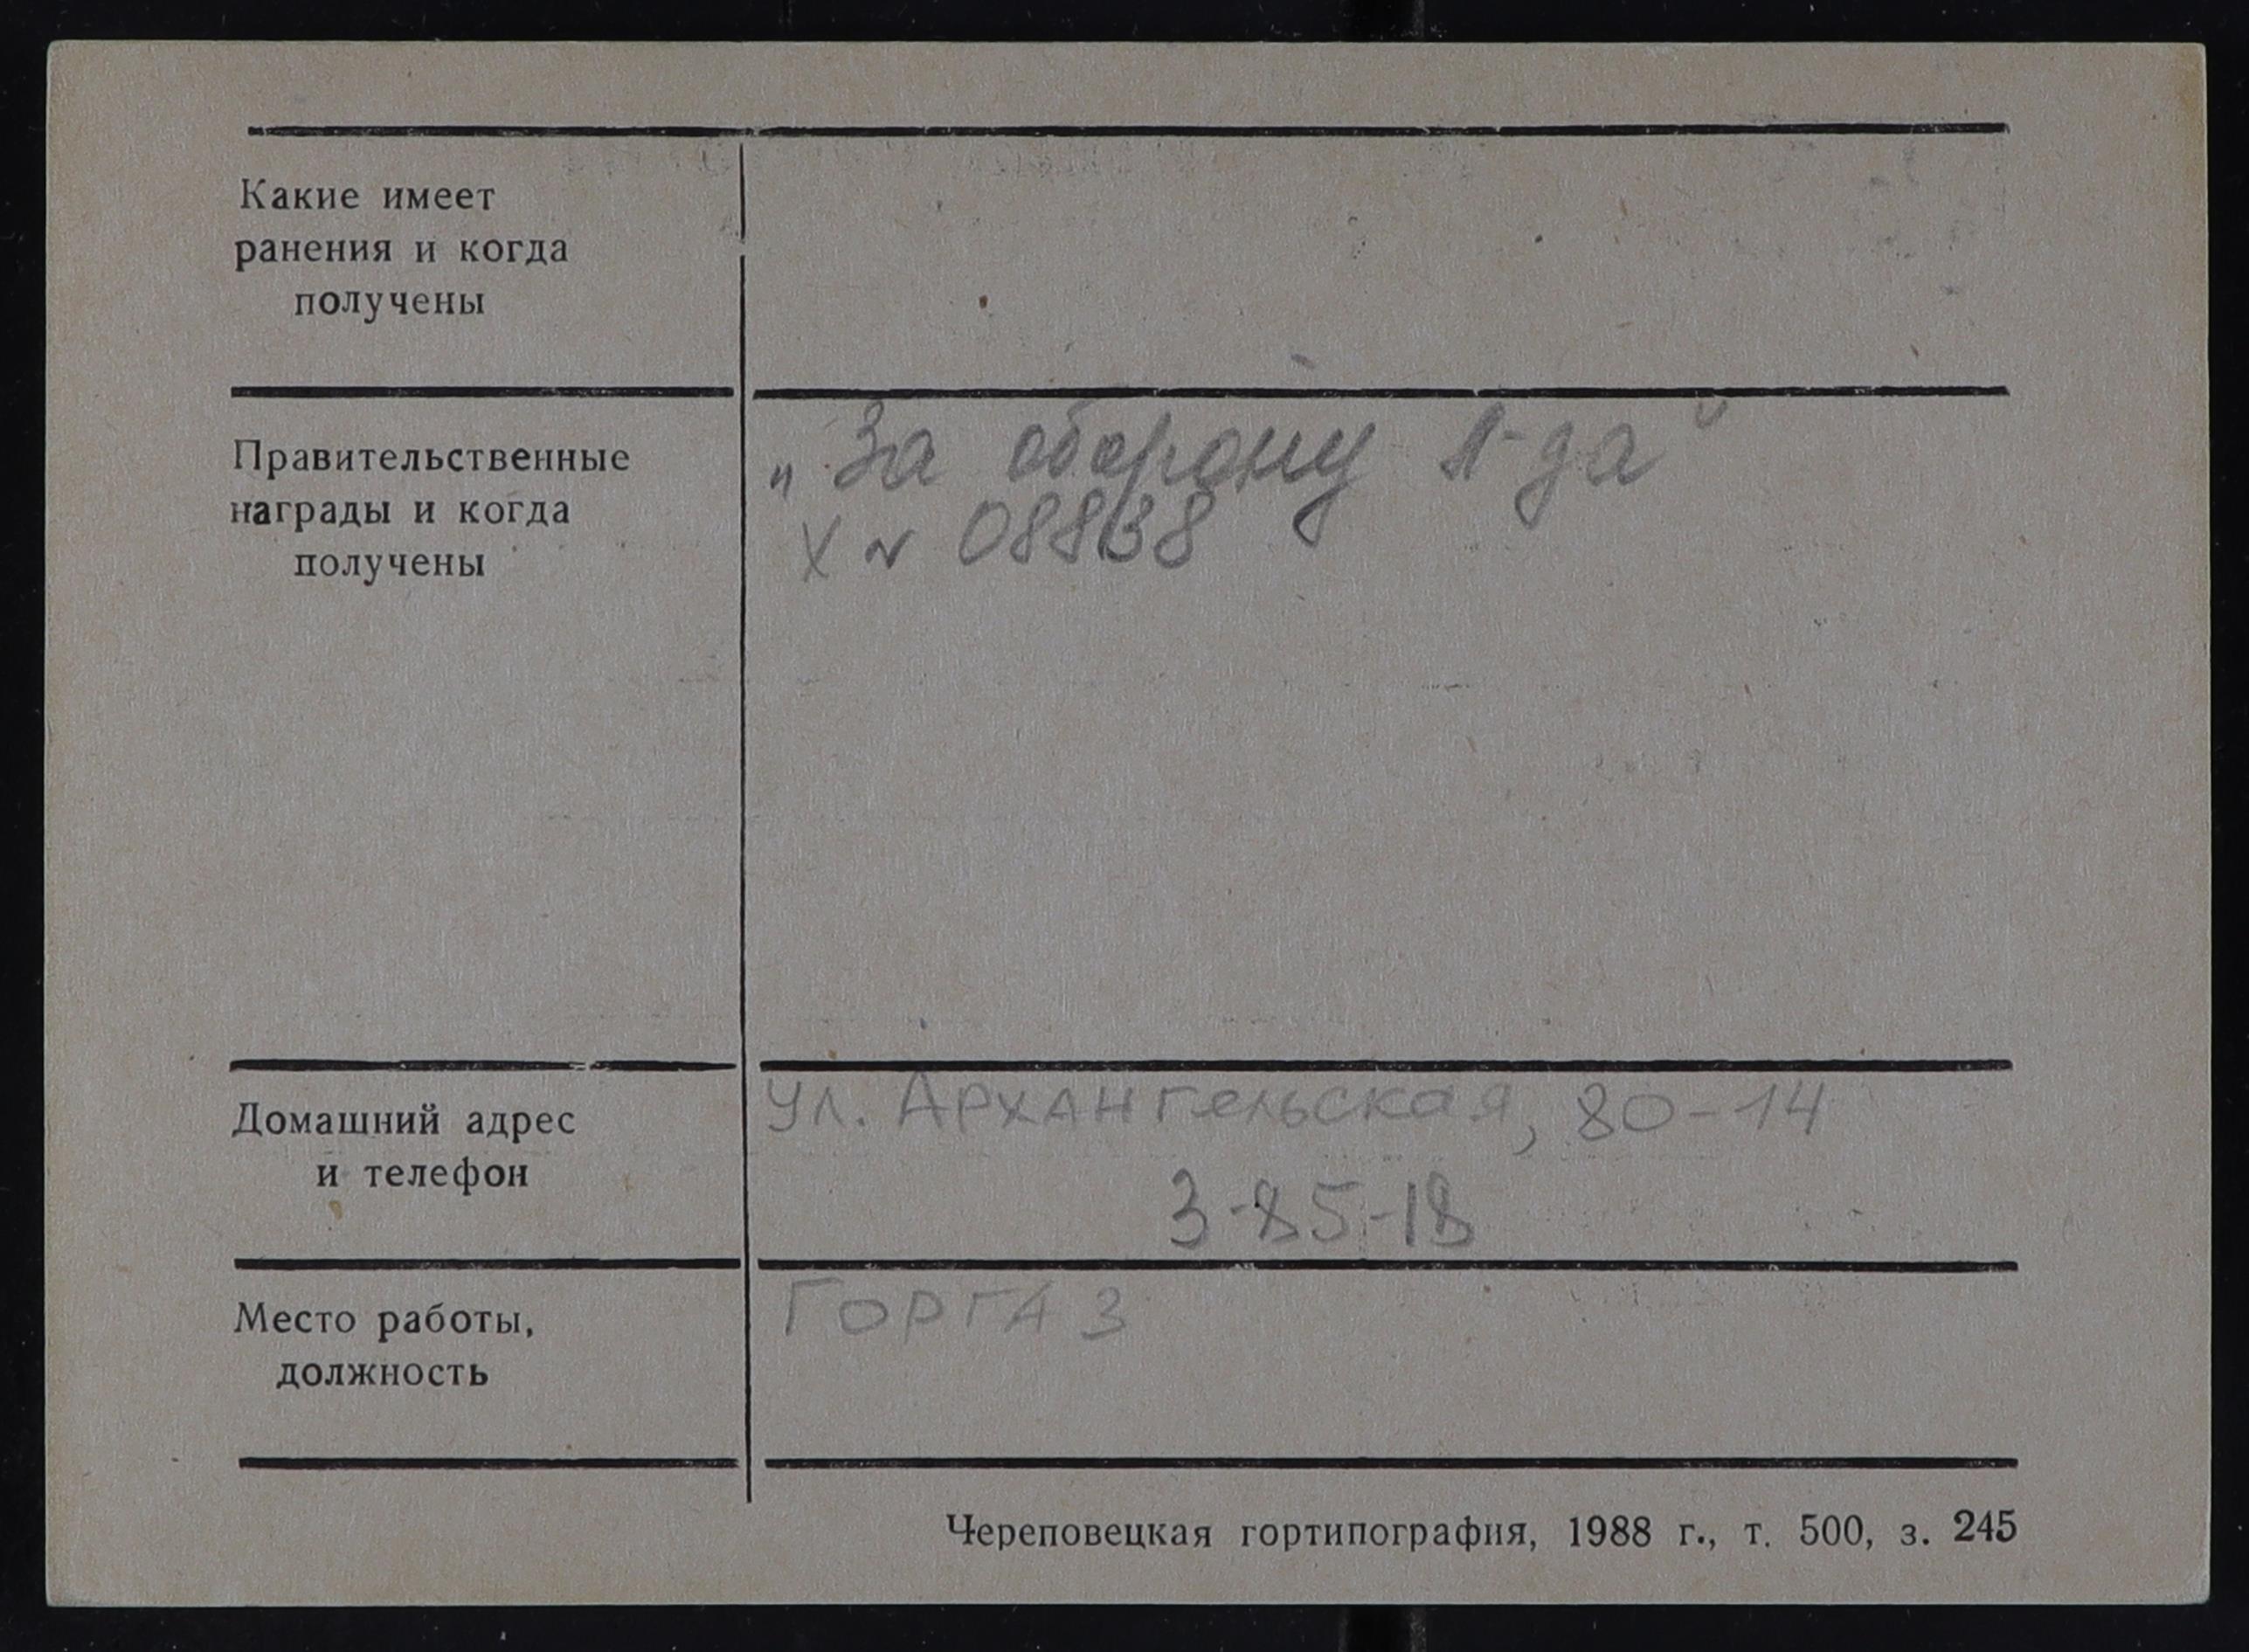 Какие имеет
ранения и когда
получены
Правительственные
награды и когда
получены
„За оборону Л-да“
X № 08838
Домашний адрес
и телефон
ул. Архангельская, 80-14
3-85-18
Место работы,
должность
ГОРГАЗ
Череповецкая гортипография, 1988 г., т. 500, з. 245